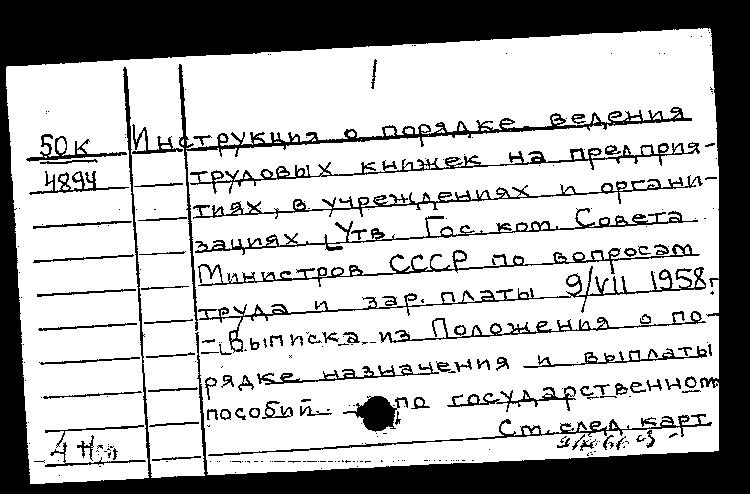 50к
4894
Инструкция о порядке ведения
трудовых книжек на предприя-
тиях, в учреждениях и органи-
зациях. Утв. Гос. ком. Совета
Министров СССР по вопросам
труда и зар. платы 9/VII 1958г.
- Выписка из Положения о по-
рядке назначения и выплаты
пособий по государственном
См. след. карт.